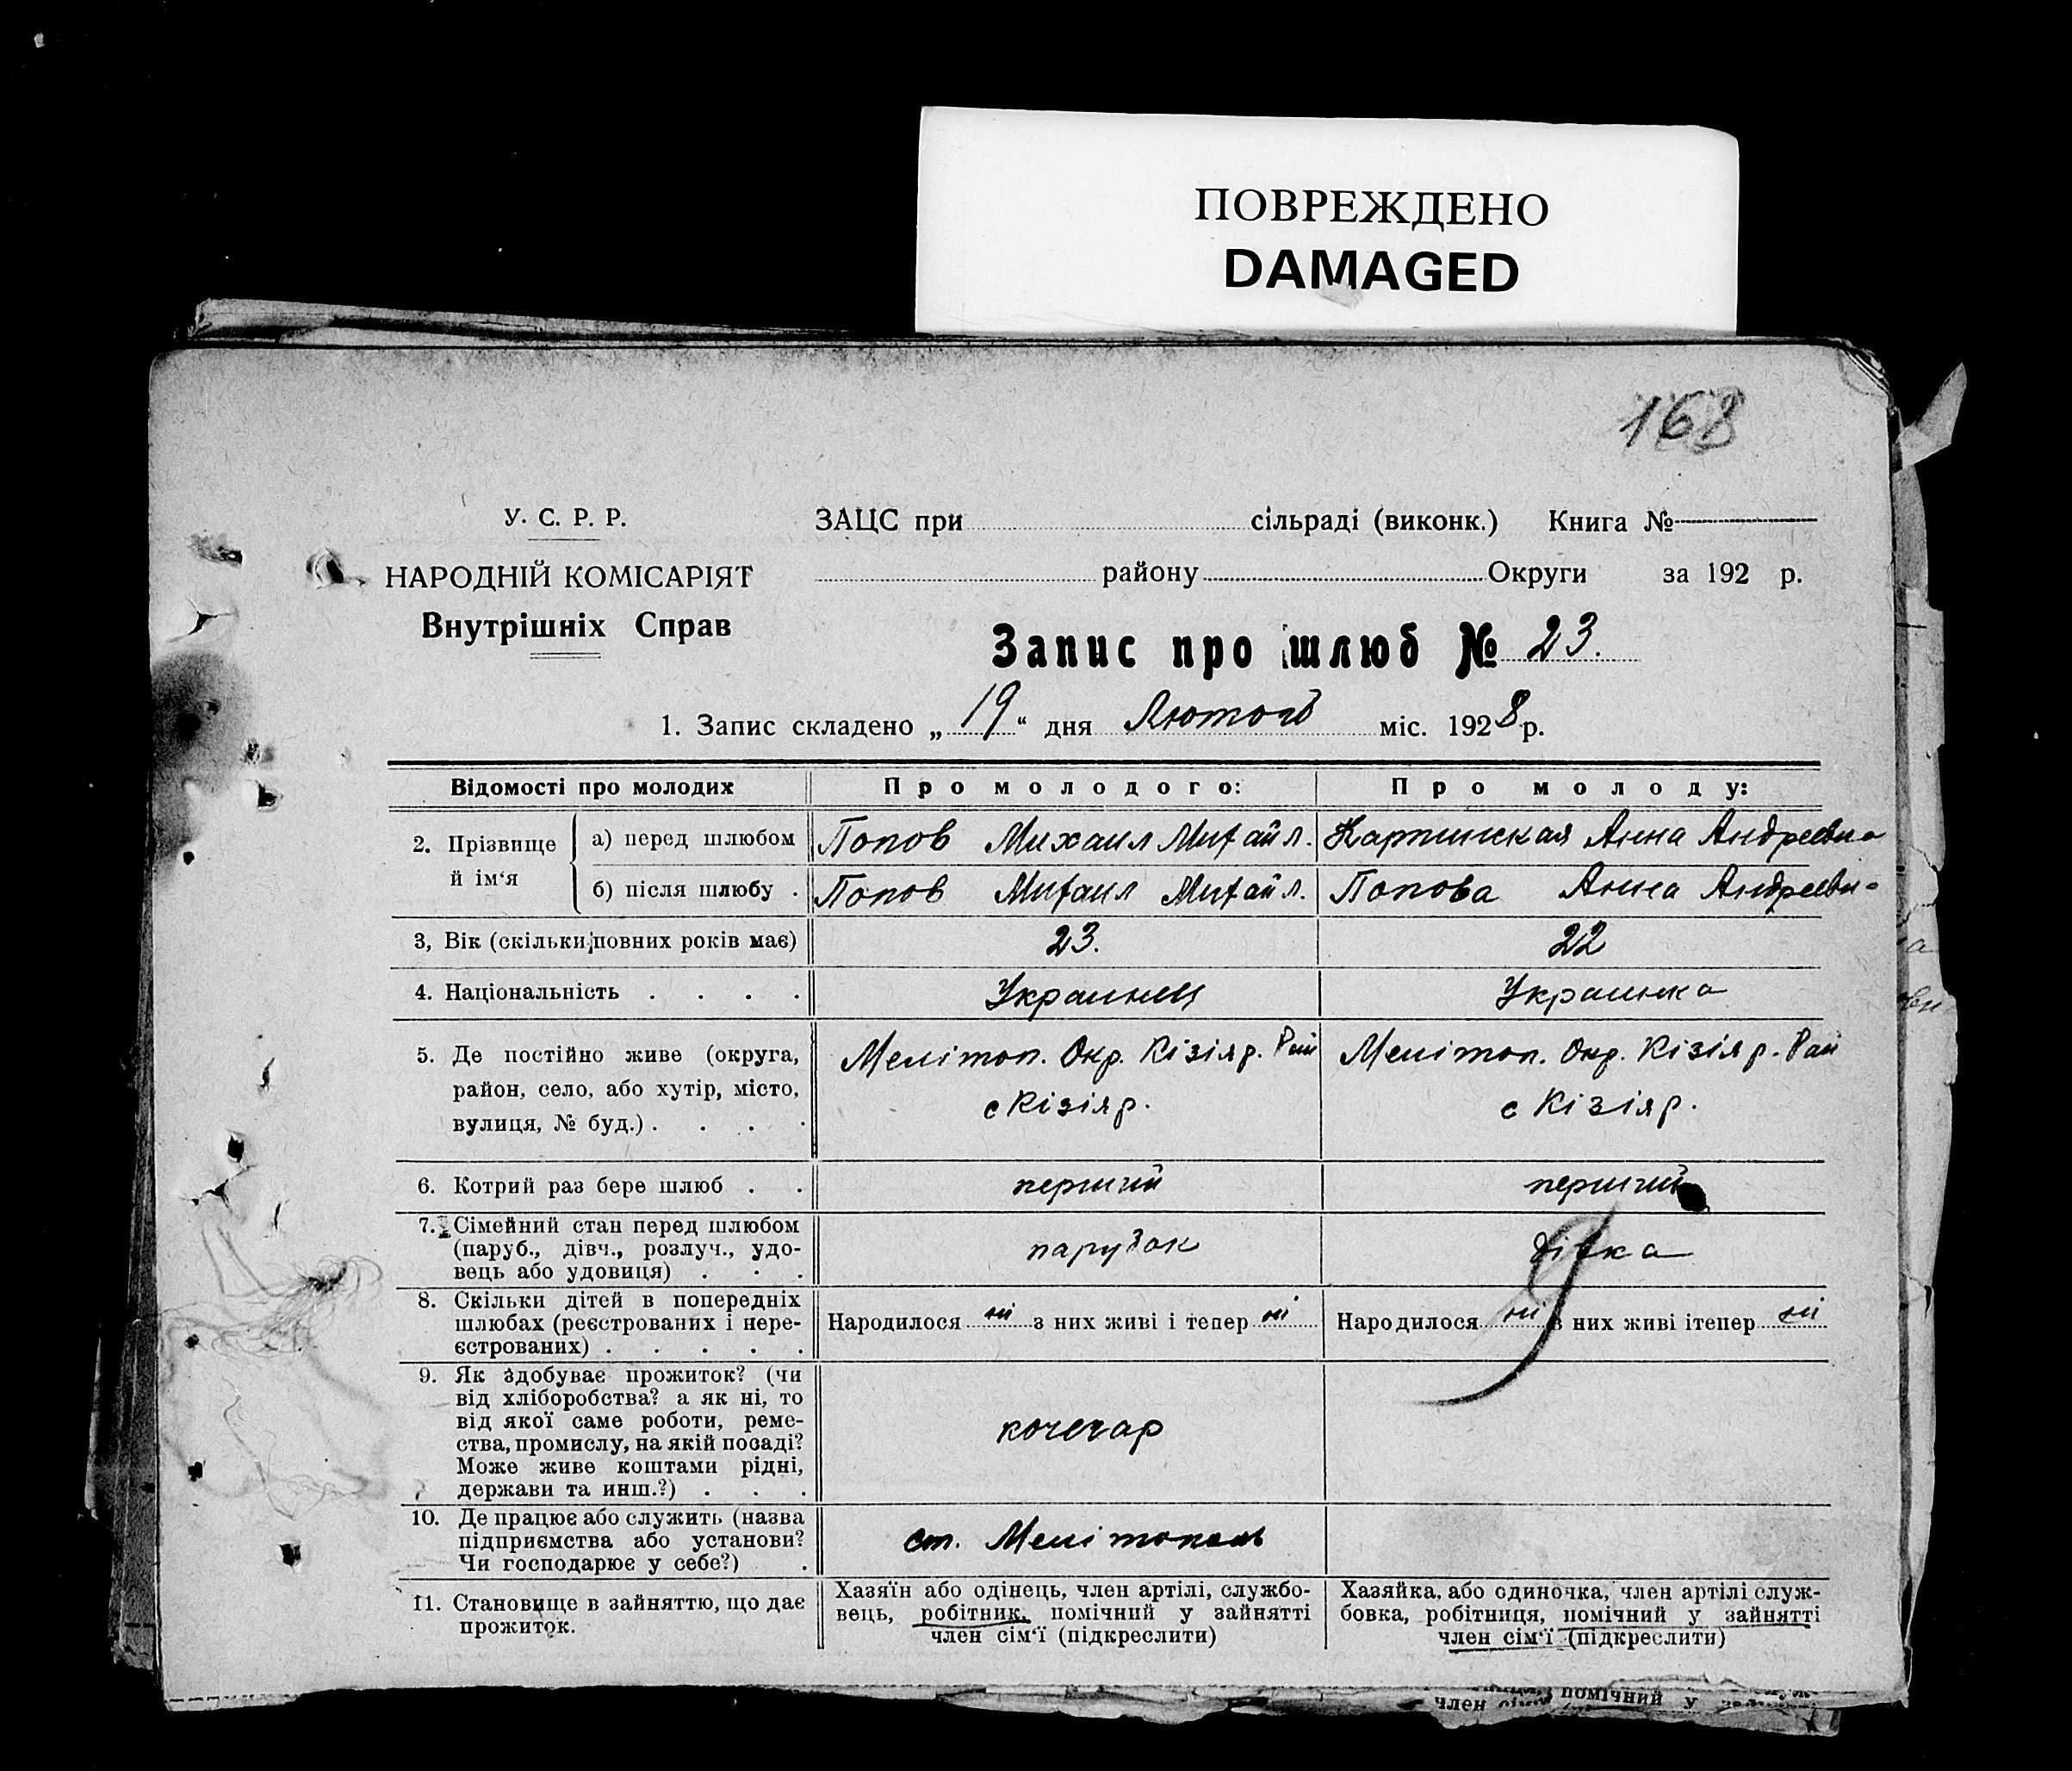 ПОВРЕЖДЕНО
DAMAGED
168
У. С. Р. Р.
НАРОДНІЙ КОМІСАРІЯТ
Внутрішніх Справ
ЗАЦС при сільраді (виконк.) Книга №
району Округи за 192 р.
Запис про шлюб № 23.
1. Запис складено „19“ дня Лютого міс. 1928 р.
Відомості про молодих
Про молодого:
Про молоду:
2. Прізвище й ім‘я
а) перед шлюбом
Попов Михаил Михайл.
Карпинская Анна Андреевна
б) після шлюбу .
Попов Михаил Михайл.
Попова Анна Андреевн-
3, Вік (скільки повних років має)
23.
22
4. Національність . . . .
Украинец
Украинка
5. Де постійно живе (округа,
район, село, або хутір, місто,
вулиця, № буд.) . . . .
Мелітоп. Окр. Кізіяр. Рай
с Кізіяр.
Мелітоп. Окр. Кізіяр. Рай
с Кізіяр.
6. Котрий раз бере шлюб . .
перший
перший
7. Сімейний стан перед шлюбом
(паруб., дівч., розлуч., удо-
вець або удовиця) . . .
парубок
дівка
8. Скільки дітей в попередніх
шлюбах (реєстрованих і нере-
єстрованих) . . . . .
Народилося ні з них живі і тепер ні
Народилося ні з них живі ітепер ні
9. Як здобуває прожиток? (чи
від хліборобства? а як ні, то
від якої саме роботи, реме-
ства, промислу, на якій посаді?
Може живе коштами рідні,
держави та инш.?) . . .
кочегар
10. Де працює або служить (назва
підприємства або установи?
Чи господарює у себе?) .
ст. Мелітополь
11. Становище в зайняттю, що дає
прожиток.
Хазяїн або одінець, член артілі, службо-
вець, робітник, помічний у зайнятті
член сім‘ї (підкреслити)
Хазяйка, або одиночка, член артілі служ-
бовка, робітниця, помічний у зайнятті
член сім‘ї (підкреслити)
помічний у
член